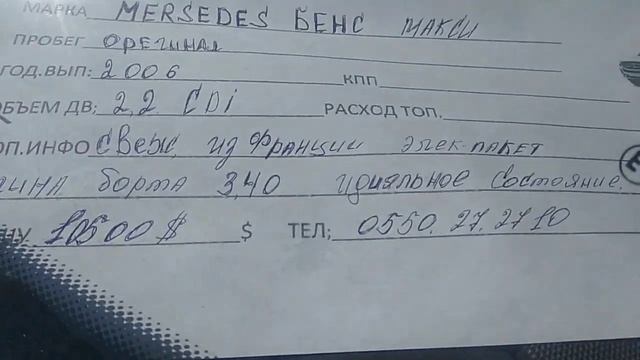 МАРКА MERSEDES БЕНС МАКСИ
ПРОБЕГ ОРЕГИНАЛ
ГОД.ВЫП: 2006 КПП
ОБЪЕМ ДВ; 2,2 CDi РАСХОД ТОП.
ОП.ИНФО СВЕЖ, ИЗ ФРАНЦИИ ЭЛЕК-ПАКЕТ
ЛИНА БОРТА 3,40 ИДИАЛЬНОЕ СОСТОЯНИЕ.
НУ 10500$ $ ТЕЛ; 0550. 27. 27 10